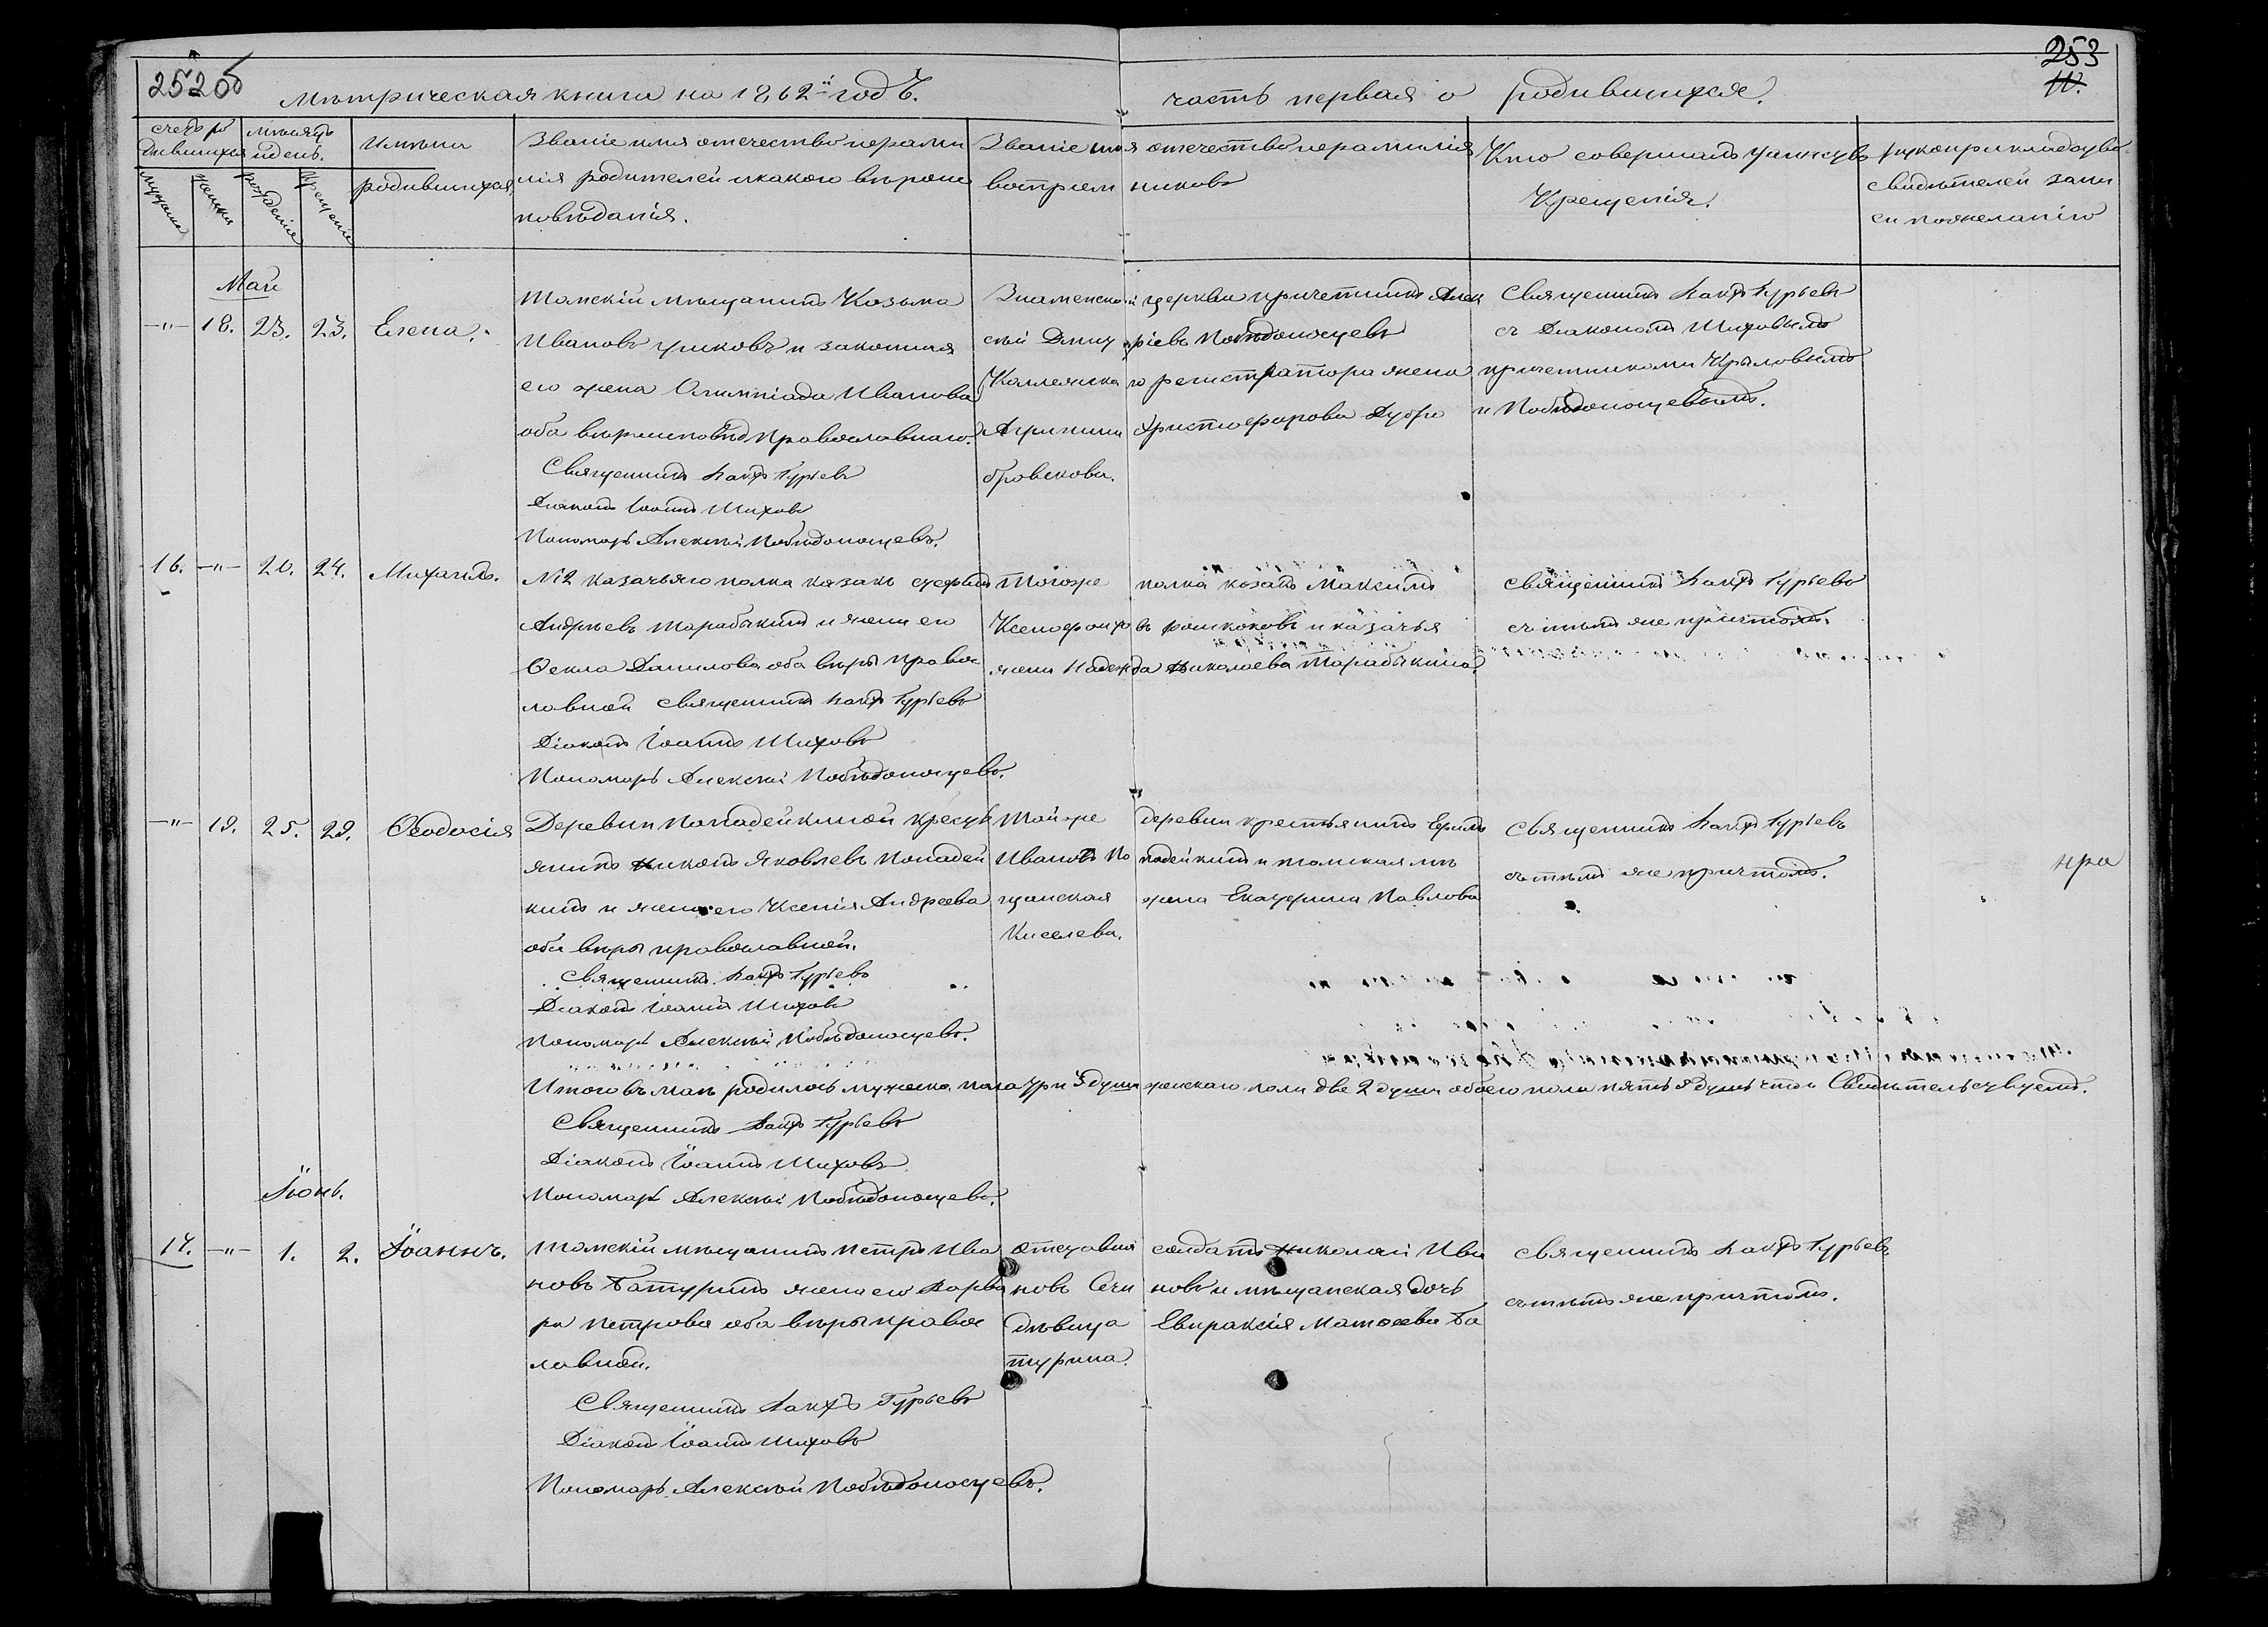 252об
253
Метрическая книга на 1862й годъ.
часть первая о родившихся.
счетъ ро
дившихся
мѣсяцъ
и день.
мужеска
женска
рожденія
крещенія
Имена
родившихся
Званіе имя отечество и фами
лія родителей и какого вѣроис
повѣданія.
Званіе имя отечество и фамилія
воспріем никовъ
Кто совершалъ таинство
Крещенія.
рукоприкладство
свидѣтелей запи
си по желанію
Маи
-"- 18. 23. 23. Елена.
Томскій мѣщанинъ Козьма
Ивановъ и законная
его жена Олимпіада Иванова
оба вѣроисповѣд православнаго.
Священникъ Вакхъ Гурьевъ
Діаконъ Іоаннъ Шиховъ
Пономарь Алексѣй Побѣдоносцевъ.
Знаменской церкви причетникъ Алек
сѣй Дмитріевъ Побѣдоносцевъ
Коллежскаго регистратора жена
Агрипина Христофорова Дубро
бровскова.
Священникъ Вакхъ Гурьевъ
съ Діакономъ Шиховымъ
причетниками Крыловымъ
и Побѣдоносцевымъ.
16. -"- 20. 24. Михаилъ.
№12 казачьяго полка казакъ
Андреевъ Тарабыкинъ и жена его
Фекла Данилова оба вѣры правос
лавной Священникъ Вакхъ Гурьевъ
Діаконъ Іоаннъ Шиховъ
Пономарь Алексѣй Побѣдоносцевъ.
Тогоже полка козакъ Максимъ
Ксенофонтовъ и казачья
жена Надежда Николаева Тарабыкина.
Священникъ Вакхъ Гурьевъ
съ тѣмъ же причтомъ.
-"- 19. 25. 29. Ѳеодосія
Деревни Попадейкиной крест
янинъ Никонъ Яковлевъ Попадей
кинъ и жена его Ксенія Андреева
оба вѣры православной.
Священникъ Вакхъ Гурьевъ
Діаконъ Іоаннъ Шиховъ
Пономарь Алексѣй Побѣдоносцевъ.
Тойже деревни крестьянинъ
Ивановъ Попадейкинъ и томская мѣ
щанская жена Екатерина Павлова
Киселева.
Священникъ Вакхъ Гурьевъ
съ тѣмъ же причтомъ.
Итого въ маѣ родилось мужеска пола три 3 души женскаго пола две 2 души обоего пола пять 5 душъ что и Свидѣтельствуемъ.
Священникъ Вакхъ Гурьевъ
Діаконъ Іоаннъ Шиховъ
Пономарь Алексѣй Побѣдоносцевъ.
Іюнь.
17. -"- 1. 2. Іоаннъ.
Томскій мѣщанинъ Петръ Ива
новъ Батуринъ жена его Варва
ра Петрова оба вѣры правос
лавной.
Священникъ Вакхъ Гурьевъ
Діаконъ Іоаннъ Шиховъ
Пономарь Алексѣй Побѣдоносцевъ.
Отставной солдатъ Николай Ива
новъ новъ и мѣщанская дочь
дѣвица Евпраксія Матѳеева Ба
турина.
Священникъ Вакхъ Гурьевъ
съ тѣмъ же причтомъ.